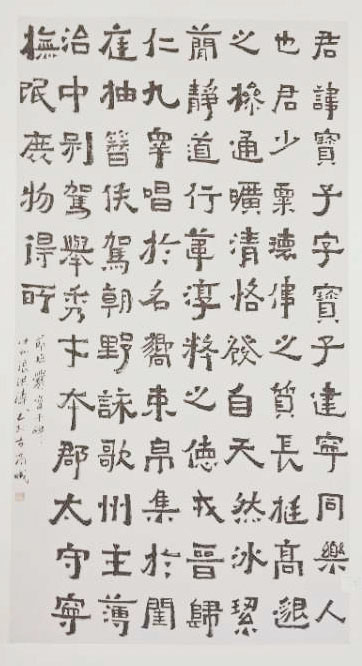 君諱寶子字寶子建寧同樂人
也君少稟瓌偉之質長挺高邈
之操通曠清恪發自天然冰絜
簡靜道行葦淳粹之德戎晉歸
仁九皋唱於名嚮束帛集於閨
庭抽簪俟駕朝野詠歌州主薄
治中別駕舉秀才本郡太守寧
撫氓庶物得所
爨寶子碑